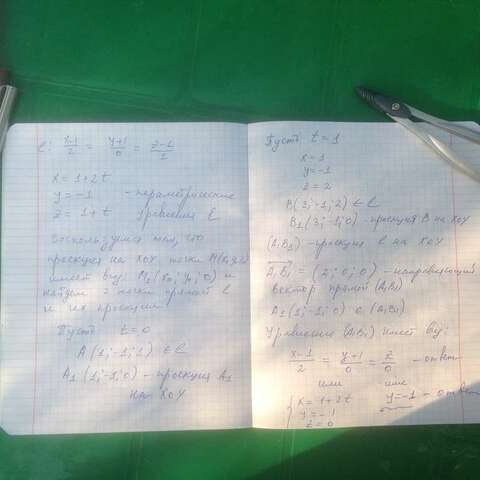 l: x-1/2 = y+1/0 = z-1/1
x = 1+2t
y = -1 - параметрические
z = 1+t уравнения l
Воспользуемся тем, что
проекция на XOY, точки
имеет вид M₁(x₀; y₀; 0) и
найдем 2 точки прямой l
и их проекции
Пусть t=0
A(1;-1;1) ∈ l
A₁(1;-1;0) - проекция A₁
на XOY
Пусть t=1
x=1
y=-1
z=2
B(3;-1;2) ∈ l
B₁(3;-1;0) - проекция B на XOY
(A₁B₁) - проекция l на XOY
A₁B₁ = (2;0;0) - направляющий
вектор прямой (A₁B₁)
A₁(1;-1;0) ∈ (A₁B₁)
Уравнение (A₁B₁) имеет вид:
x-1/2 = y+1/0 = z/0 - ответ
или или
x = 1+2t y=-1 - ответ
y = -1
z = 0